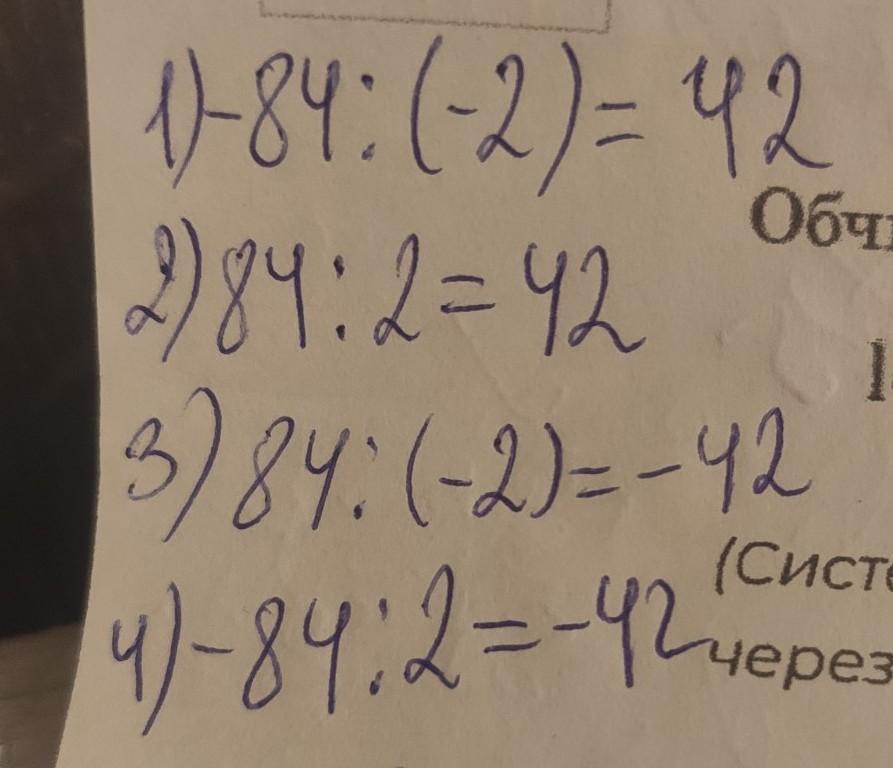 1) -84 : (-2) = 42
Обч
2) 84 : 2 = 42
3) 84 : (-2) = -42
(Систе
4) -84 : 2 = -42
через